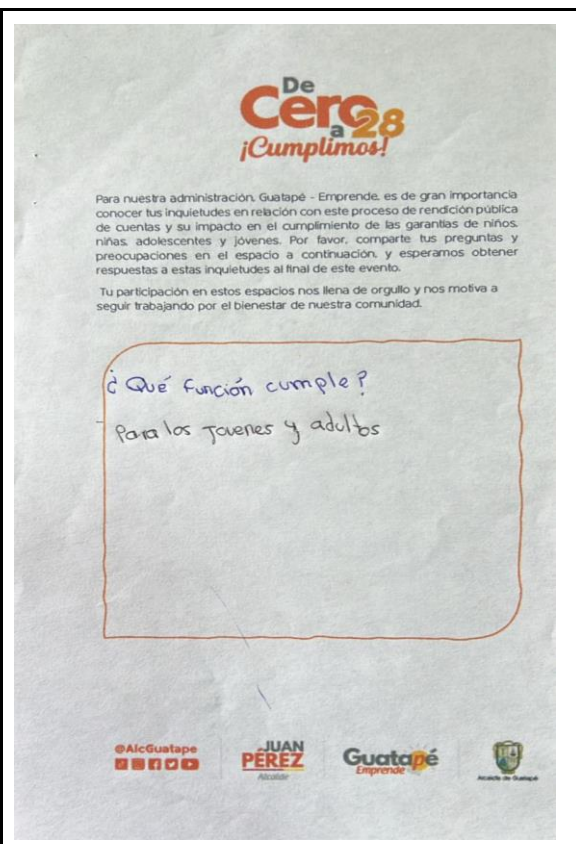 De
Cero
a 28
¡Cumplimos!
Para nuestra administración, Guatapé - Emprende, es de gran importancia
conocer tus inquietudes en relación con este proceso de rendición pública
de cuentas y su impacto en el cumplimiento de las garantías de niños,
niñas, adolescentes y jóvenes. Por favor, comparte tus preguntas y
preocupaciones en el espacio a continuación, y esperamos obtener
respuestas a estas inquietudes al final de este evento.
Tu participación en estos espacios nos llena de orgullo y nos motiva a
seguir trabajando por el bienestar de nuestra comunidad.
¿Qué función cumple?
Para los Jovenes y adultos
@AlcGuatape
JUAN
PÉREZ
Alcalde
Guatapé
Emprende
Alcaldía de Guatapé